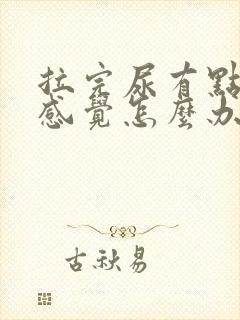 拉完尿有點
感覺怎麼办
古秋易